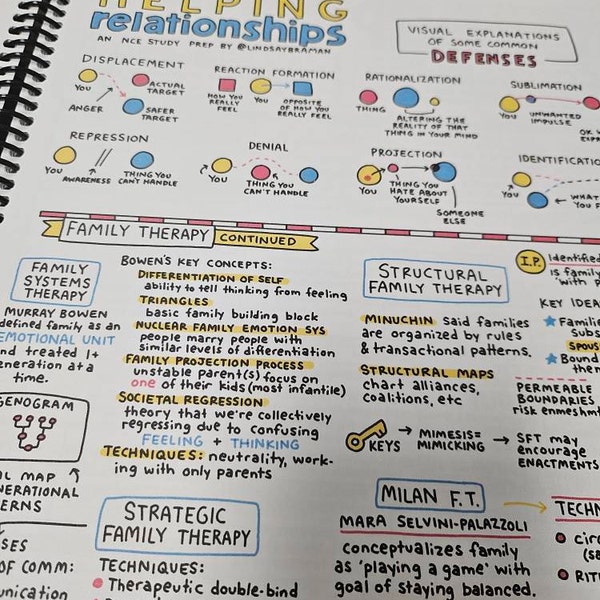 HELPING
relationships
AN NCE STUDY PREP BY @LINDSAYBRAMAN
VISUAL EXPLANATIONS
OF SOME COMMON
DEFENSES
DISPLACEMENT
YOU
ACTUAL
TARGET
ANGER
SAFER
TARGET
REACTION FORMATION
HOW YOU
REALLY
FEEL
YOU
OPPOSITE
OF HOW YOU
REALLY FEEL
RATIONALIZATION
THING
YOU
ALTERING THE
REALITY OF THAT
THING IN YOUR MIND
SUBLIMATION
YOU
UNWANTED
IMPULSE
OK
REPRESSION
YOU
AWARENESS
THING YOU
CAN'T HANDLE
DENIAL
YOU
THING YOU
CAN'T HANDLE
PROJECTION
YOU
THING YOU
HATE ABOUT
YOURSELF
SOMEONE
ELSE
IDENTIFICATIO
YOU
WHAT
YOU F
FAMILY THERAPY CONTINUED
FAMILY
SYSTEMS
THERAPY
MURRAY BOWEN
defined family as an
EMOTIONAL UNIT
and treated 1+
generation at a
time.
GENOGRAM
AL MAP
NERATIONAL
ERNS
SES
OF COMM:
unication
BOWEN'S KEY CONCEPTS:
DIFFERENTIATION OF SELF
ability to tell thinking from feeling
TRIANGLES
basic family building block
NUCLEAR FAMILY EMOTION SYS
people marry people with
similar levels of differentiation
FAMILY PROJECTION PROCESS
unstable parent(s) focus on
one of their kids (most infantile)
SOCIETAL REGRESSION
theory that we're collectively
regressing due to confusing
FEELING + THINKING
TECHNIQUES: neutrality, work-
ing with only parents
STRATEGIC
FAMILY THERAPY
TECHNIQUES:
Therapeutic double-bind
STRUCTURAL
FAMILY THERAPY
MINUCHIN said families
are organized by rules
& transactional patterns.
STRUCTURAL MAPS
chart alliances,
coalitions, etc
KEYS → MIMESIS=
MIMICKING → SFT may
encourage
ENACTMENTS
I.P. Identified
is family
"with p
KEY IDEA
Familie
Subs
SPOUS
Bound
then
PERMEABLE
BOUNDARIES
risk enmeshm
MILAN F.T.
MARA SELVINI-PALAZZOLI
conceptualizes family
as 'playing a game' with
goal of staying balanced.
TECHN
circ
(sa
RIT